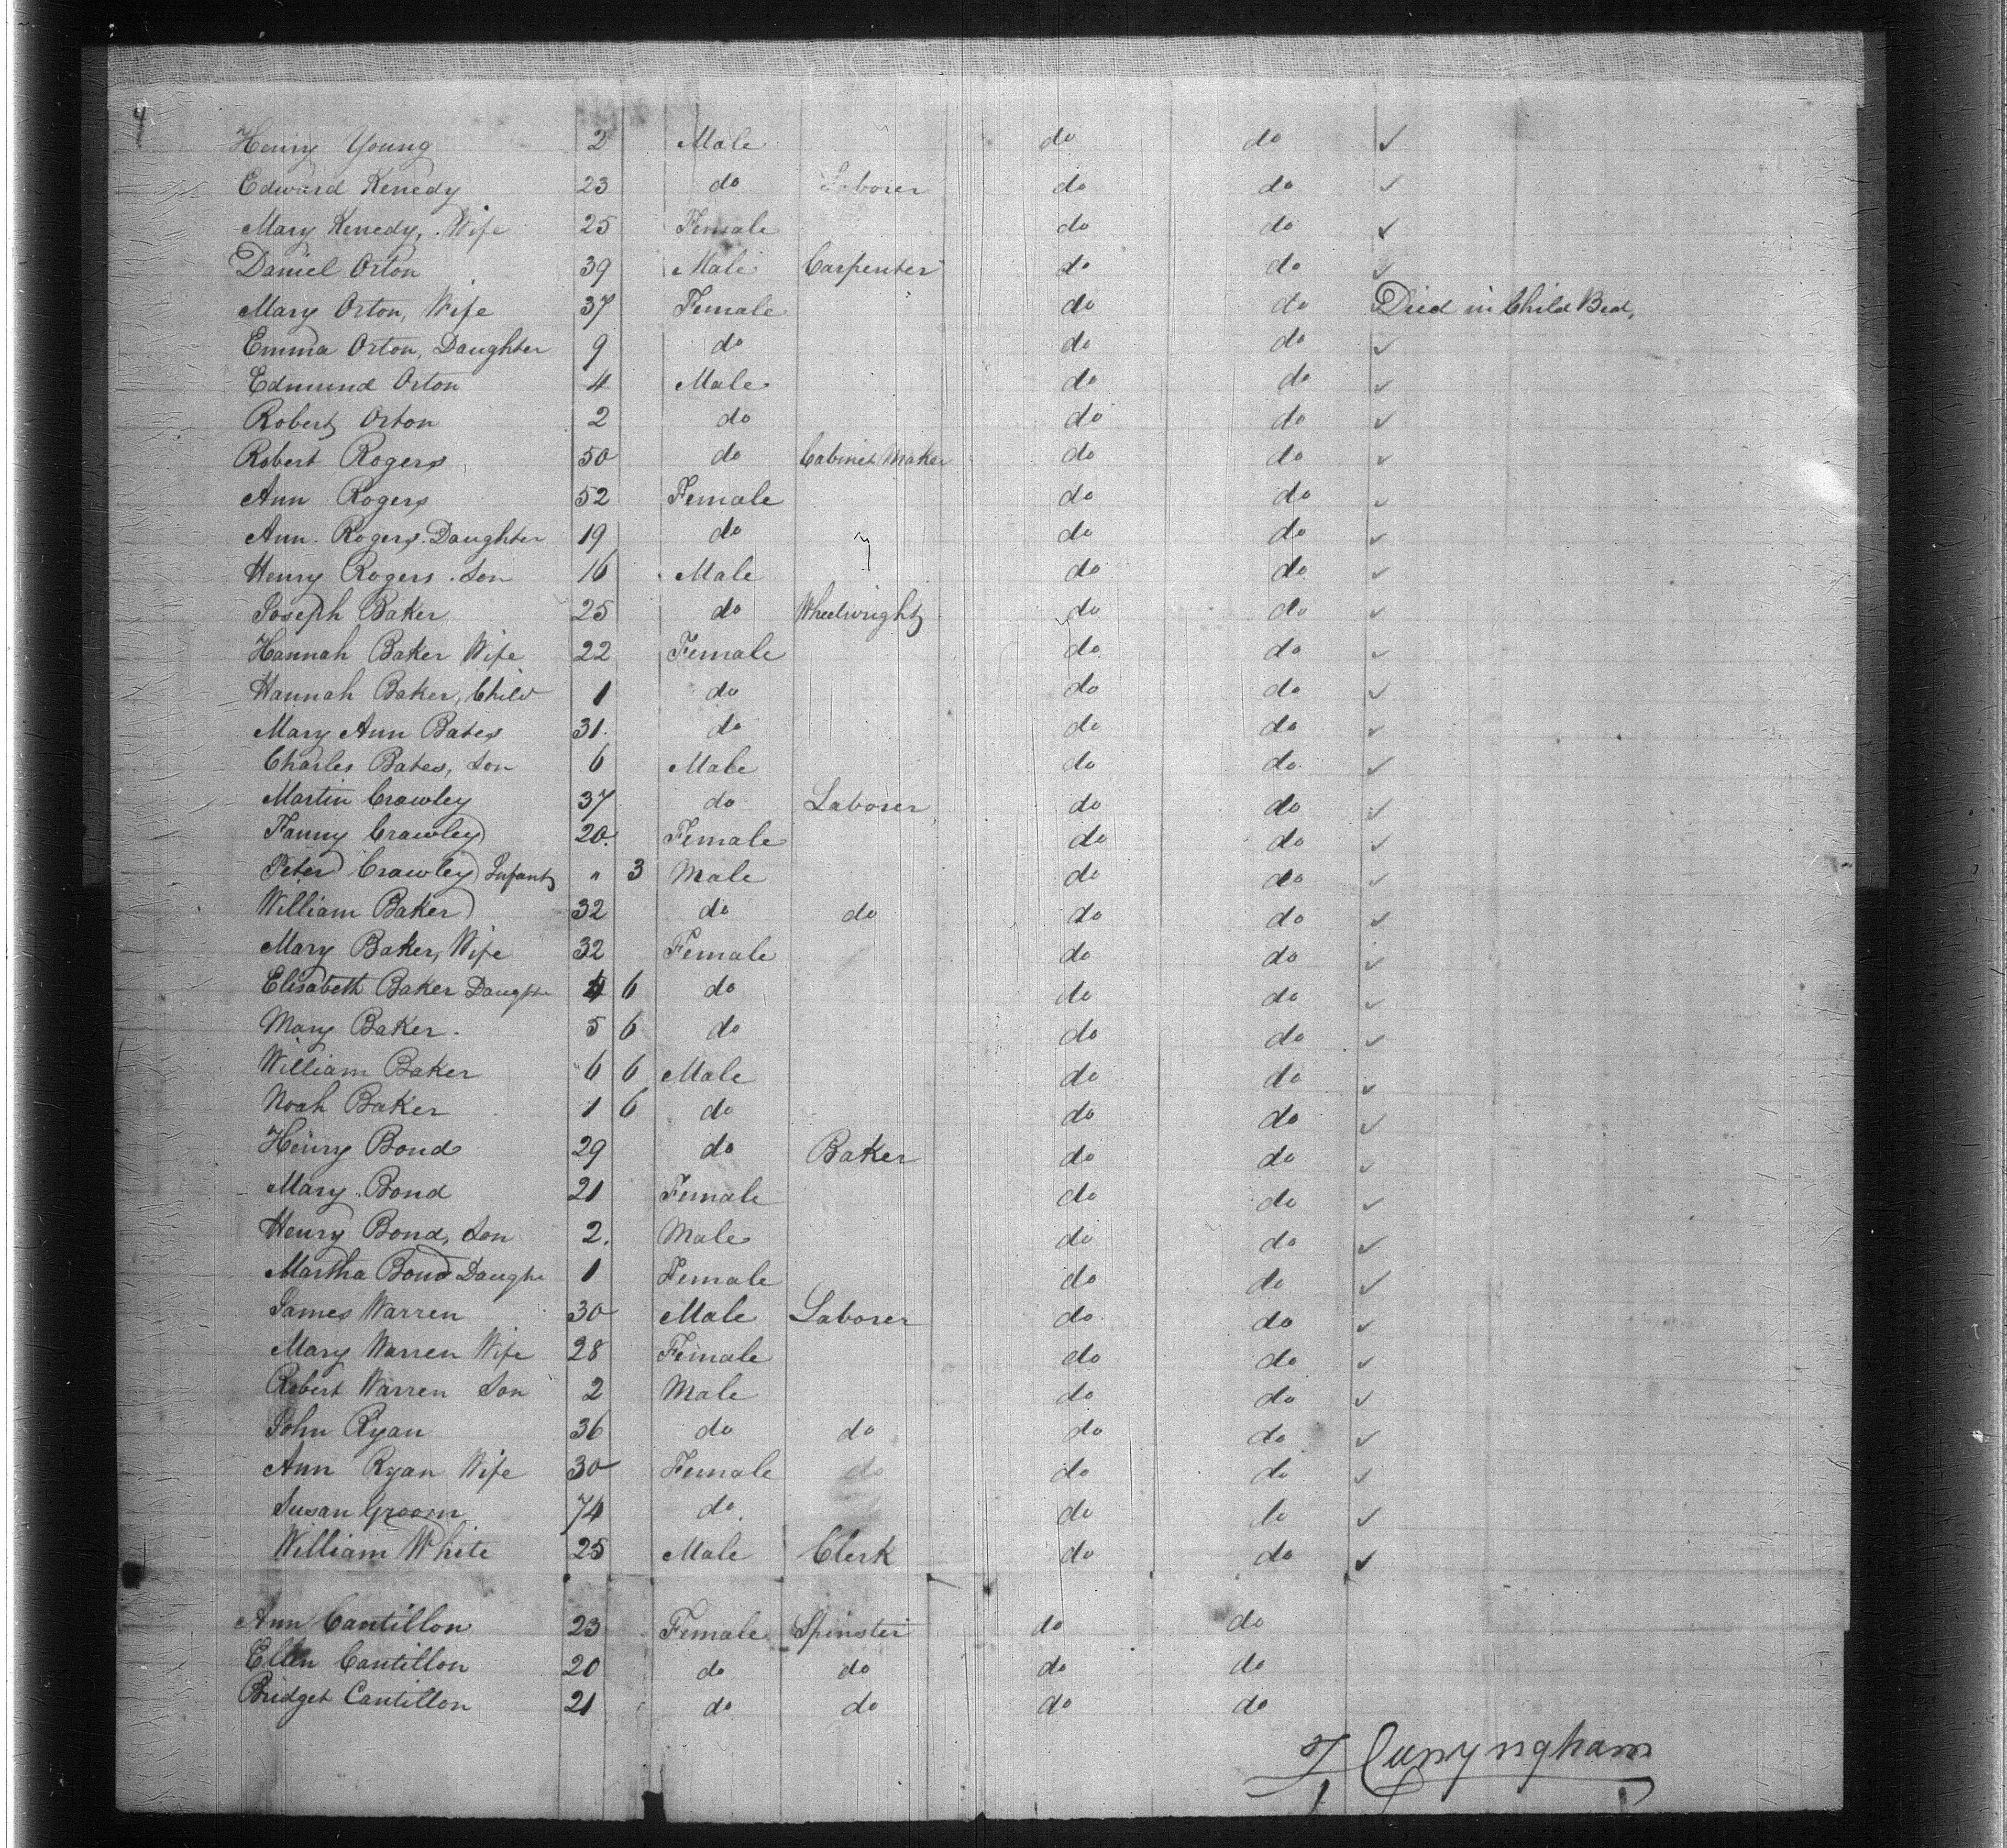 4
Henry Young 2 Male do do ✓
Edward Kenedy 23 do Laborer do do ✓
Mary Kenedy, Wife 25 Female do do ✓
Daniel Orton 39 Male Carpenter do do ✓
Mary Orton, Wife 37 Female do do Died in Child Bed,
Emma Orton, Daughter 9 do do do ✓
Edmund Orton 4 Male do do ✓
Robert Orton 2 do do do ✓
Robert Rogers 50 do Cabinet Maker do do ✓
Ann Rogers 52 Female do do ✓
Ann. Rogers. Daughter 19 do do do ✓
Henry Rogers. Son 16 Male do do ✓
Joseph Baker 25 do Wheelwright do do ✓
Hannah Baker Wife 22 Female do do ✓
Hannah Baker, Child 1 do do do ✓
Mary Ann Bates 31. do do do ✓
Charles Bates, Son 6 Male do do ✓
Martin Crawley 37 do Laborer do do ✓
Fanny Crawley 20. Female do do ✓
Peter Crawley Infant " 3 Male do do ✓
William Baker 32 do do do do ✓
Mary Baker, Wife 32 Female do do ✓
Elisabeth Baker Daughte 4 6 do do do ✓
Mary Baker. 5 6 do do do ✓
William Baker 6 6 Male do do ✓
Noah Baker 1 6 do do do ✓
Henry Bond 29 do Baker do do ✓
Mary. Bond 21 Female do do ✓
Henry Bond, Son 2. Male do do ✓
Martha Bond Daughe 1 Female do do ✓
James Warren 30 Male Laborer do do ✓
Mary Warren Wife 28 Female do do ✓
Robert Warren Son 2 Male do do ✓
John Ryan 36 do do do do ✓
Ann Ryan Wife 30 Female do do do ✓
Susan Groom 74 do do do ✓
William White 25 Male Clerk do do ✓
Ann Cantillon 23 Female Spinster do do
Ellen Cantillon 20 do do do do
Bridget Cantillon 21 do do do do
Cunyngham